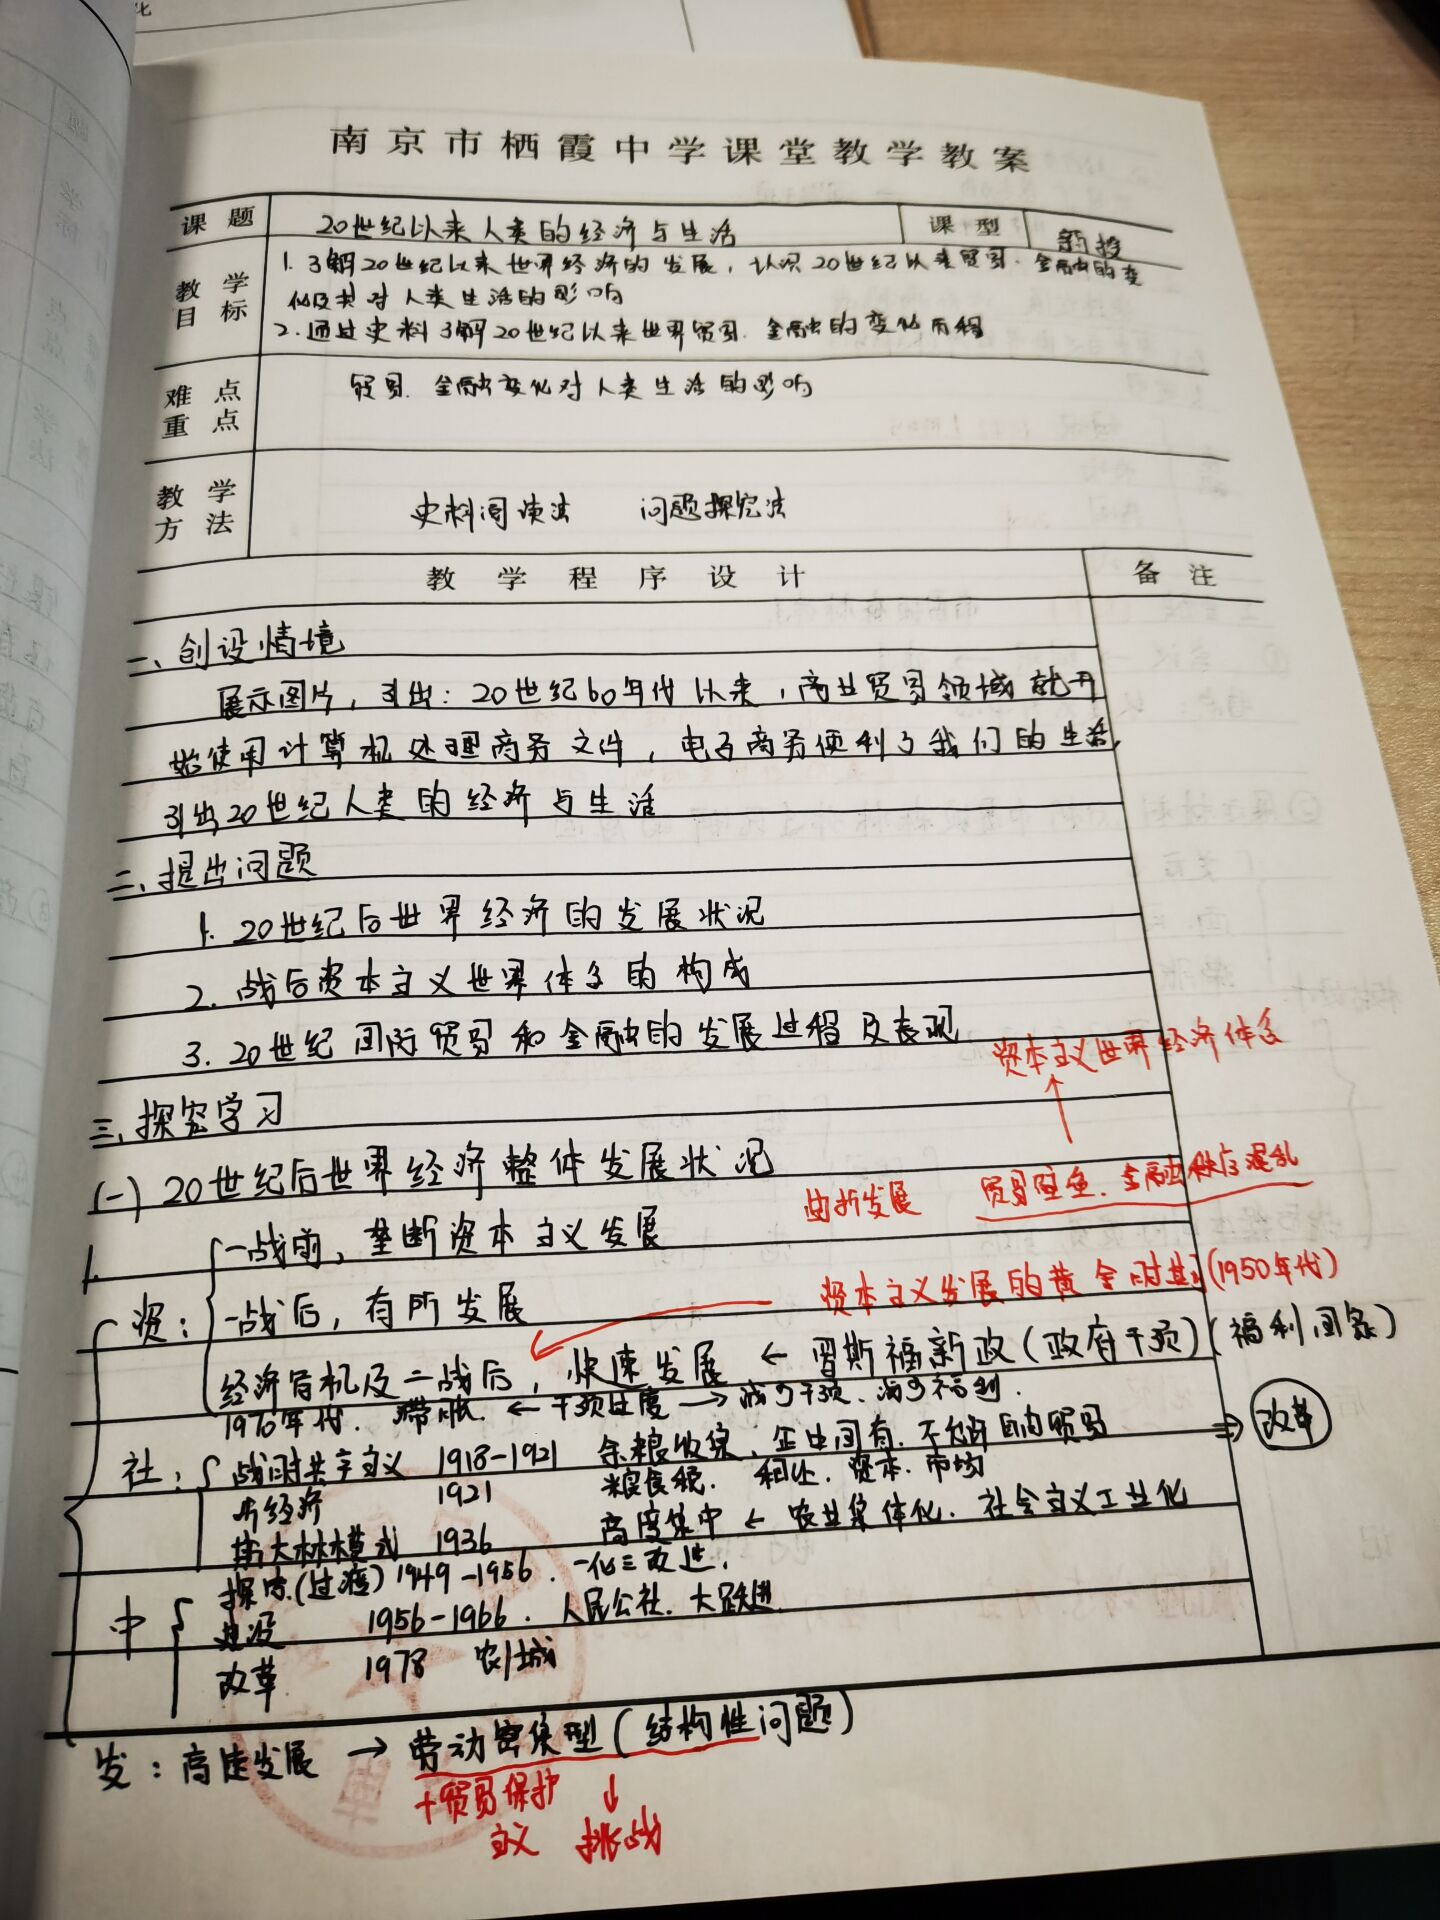 南京市栖霞中学课堂教学教案
课题 20世纪以来人类的经济与生活 课型 新授
教学目标 1.了解20世纪以来世界经济的发展,认识20世纪以来贸易.金融的变
化及其对人类生活的影响
2.通过史料了解20世纪以来世界贸易.金融的变化历程
难点重点 贸易.金融变化对人类生活的影响
教学方法 史料阅读法 问题探究法
教学程序设计 备注
一、创设情境
展示图片,引出:20世纪60年代以来,商业贸易领域就开
始使用计算机处理商务文件,电子商务便利了我们的生活,
引出20世纪人类的经济与生活
二、提出问题
1.20世纪后世界经济的发展状况
2.战后资本主义世界体系的构成
3.20世纪国际贸易和金融的发展过程及表现
资本主义世界经济体系
三、探究学习
(一)20世纪后世界经济整体发展状况
曲折发展 贸易壁垒.金融秩序混乱
1.
资:一战前,垄断资本主义发展
一战后,有所发展
资本主义发展的黄金时期(1950年代)
经济危机及二战后,快速发展←罗斯福新政(政府干预)(福利国家)
1970年代.滞胀.←干预过度→减少干预.减少福利.
社:战时共产主义 1918-1921 余粮收集.企业国有.不允许自由贸易 ⇒改革
新经济 1921 粮食税.租让.资本.市场
斯大林模式 1936 高度集中←农业集体化.社会主义工业化
中 探索(过渡)1949-1956.一化三改造.
建设 1956-1966.人民公社.大跃进
改革 1978 农|城
发:高速发展→劳动密集型(结构性问题)
+贸易保护 ↓
主义 挑战